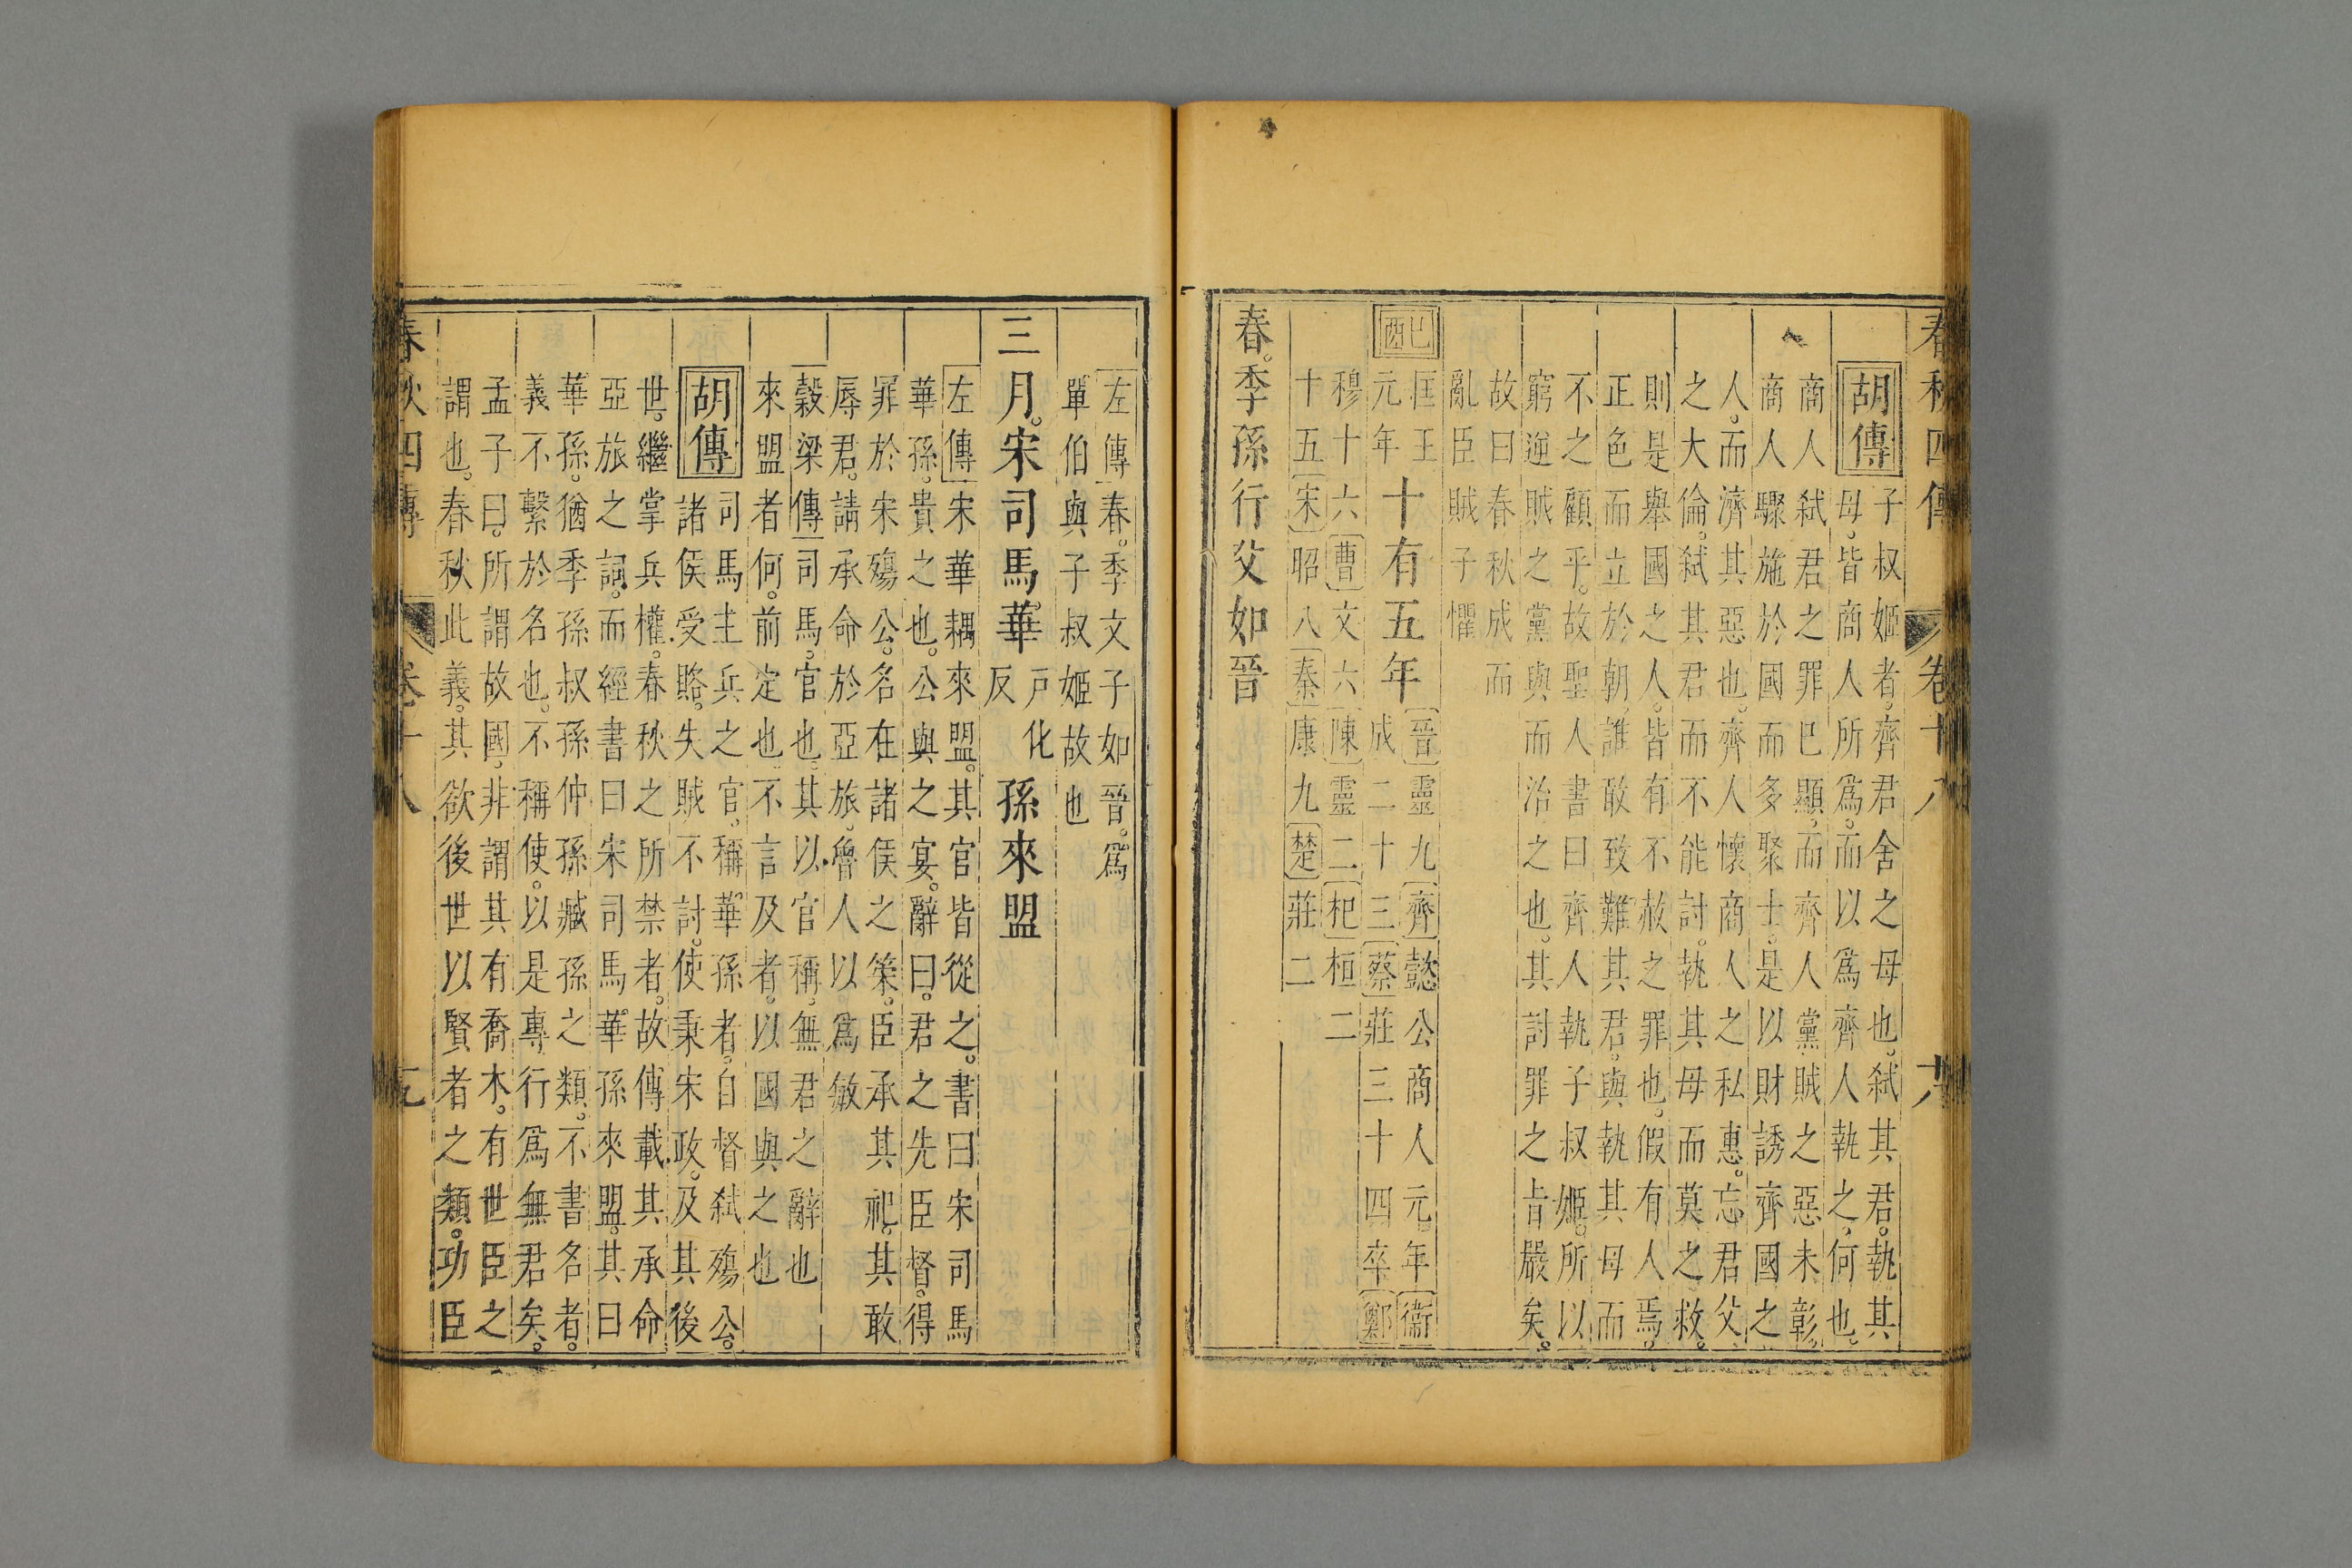 春秋四傳 卷十八
胡傳 子叔姬者。齊君舍之母也。弑其君。執其
母。皆商人所爲。而以爲齊人執之。何也。
商人弑君之罪已顯。而齊人黨賊之惡未彰。
商人驟施於國而多聚士。是以財誘齊國之
人。而濟其惡也。齊人懷商人之私惠。忘君父
之大倫。弑其君而不能討。執其母而莫之救。
則是舉國之人。皆有不赦之罪也。假有人焉。
正色而立於朝。誰敢致難其君。與執其母而
不之顧乎。故聖人書曰齊人執子叔姬。所以
窮逆賊之黨與而治之也。其討罪之旨嚴矣。
故曰春秋成而
亂臣賊子懼
巳酉
匡王
元年
十有五年
晉靈九齊懿公商人元年衞
成二十三蔡莊三十四卒鄭
穆十六曹文六陳靈二杞桓二
十五宋昭八秦康九楚莊二
春。季孫行父如晉
左傳春。季文子如晉。爲
單伯與子叔姬故也
三月。宋司馬華 戶化反 孫來盟
左傳宋華耦來盟。其官皆從之。書曰宋司馬
華孫。貴之也。公與之宴。辭曰。君之先臣督。得
罪於宋殤公。名在諸侯之策。臣承其祀。其敢
辱君。請承命於亞旅。魯人以爲敏
穀梁傳司馬。官也。其以官稱。無君之辭也
來盟者何。前定也。不言及者。以國與之也
胡傳 司馬主兵之官。稱華孫者。自督弑殤公。
諸侯受賂。失賊不討。使秉宋政。及其後
世。繼掌兵權。春秋之所禁者。故傳載其承命
亞旅之詞。而經書曰宋司馬華孫來盟。其曰
華孫。猶季孫叔孫仲孫臧孫之類。不書名者。
義不繫於名也。不稱使。以是專行爲無君矣。
孟子曰。所謂故國。非謂其有喬木。有世臣之
謂也。春秋此義。其欲後世以賢者之類。功臣
春秋四傳 卷十八